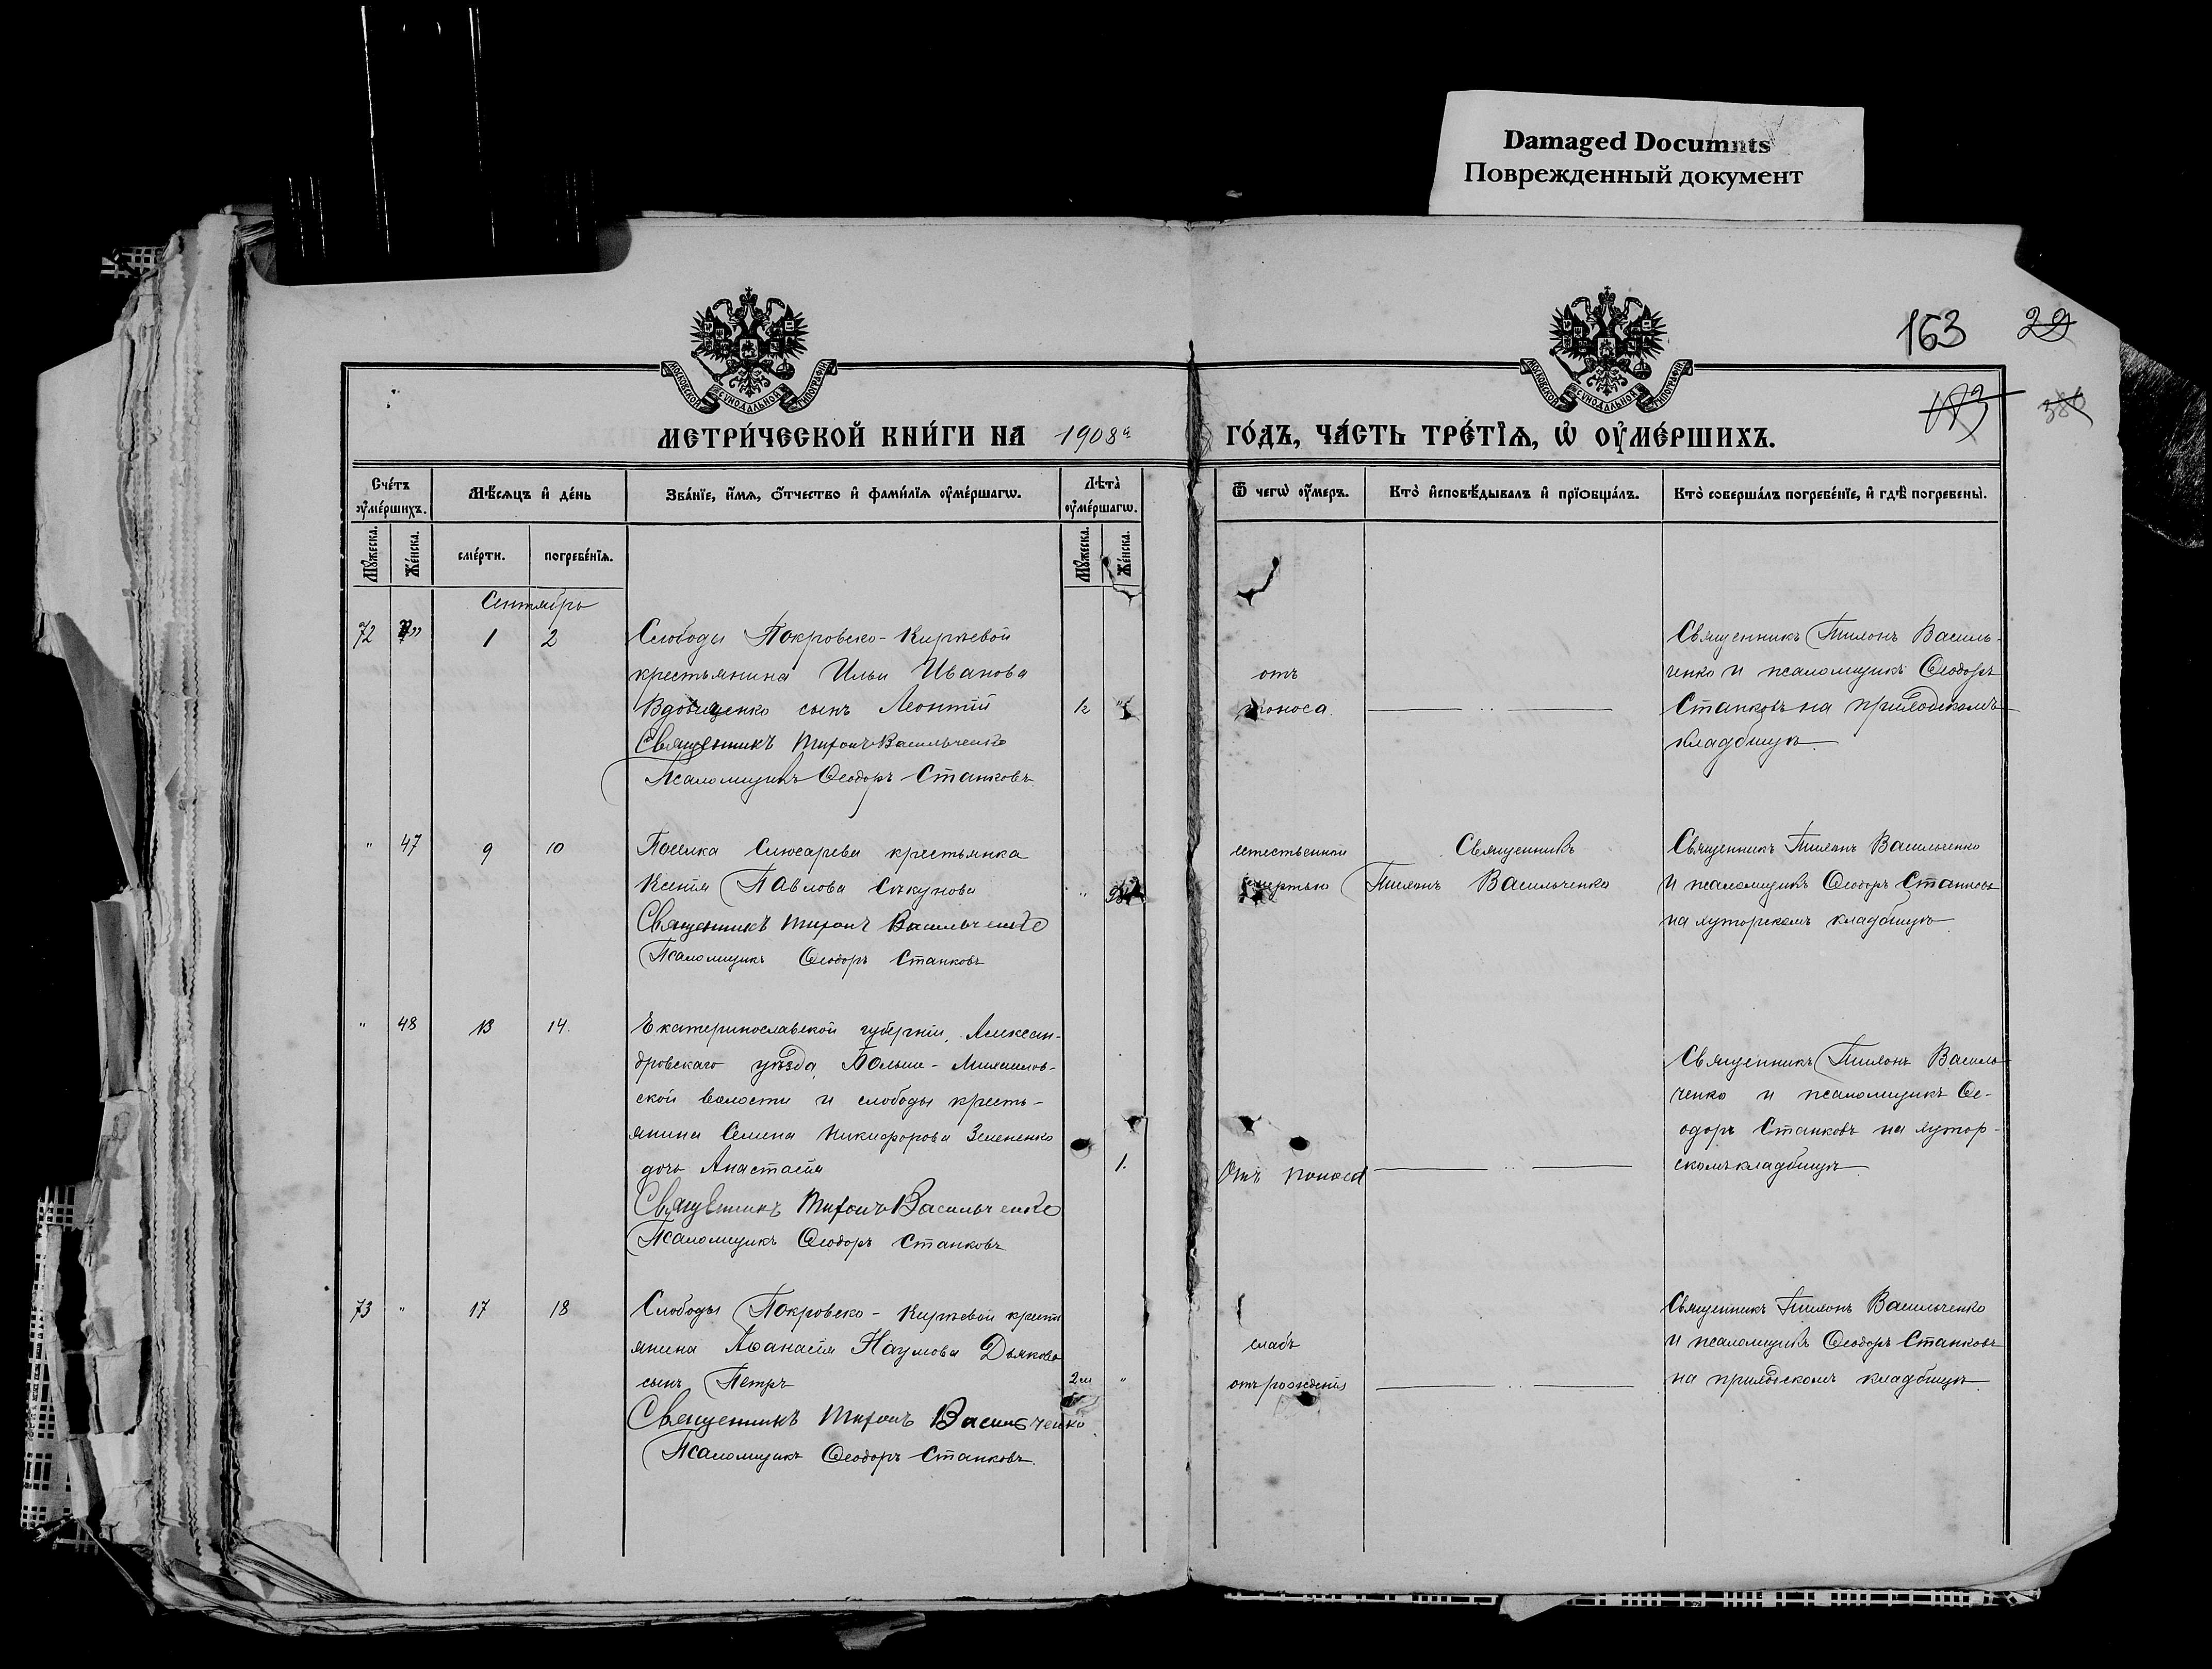 Damaged Documnts
Поврежденный документ
163 29
183 380
МОСКОВСКОЙ СѴНОДАЛЬНОЙ ТИПОГРАФІИ
МОСКОВСКОЙ СѴНОДАЛЬНОЙ ТИПОГРАФІИ
МЕТРИ́ЧЕСКОЙ КНИ́ГИ НА 1908 го́дъ, ча́сть тре́тїѧ, ѡ҆ ᲂу҆ме́ршихъ.
Сче́тъ ᲂу҆ме́ршихъ.
Мѣ́сѧцъ и҆ де́нь
Зва́нїе, и҆́мѧ, ѻ҆́тчество и҆ фами́лїѧ ᲂу҆ме́ршагѡ.
Лѣ́та ᲂу҆ме́ршагѡ.
Ѿ чегѡ̀ ᲂу҆́меръ.
Кто̀ и҆сповѣ́дывалъ и҆ прїѻбща́лъ.
Кто̀ соверша́лъ погребе́нїе, и҆ гдѣ̀ погребены̀.
Мꙋ́жеска.
Же́нска.
сме́рти.
погребе́нїѧ.
Мꙋ́жеска.
Же́нска.
Сентябрь
72 " 1 2 Слободы Покровско-Киреевой
крестьянина Ильи Иванова
Вдовиченко сынъ Леонтій 1/2 "
Священникъ Тихонъ Васильченко
Псаломщикъ Ѳеодоръ Станковъ
отъ
поноса.
Священникъ Тихонъ Василь-
ченко и псаломщикъ Ѳеодоръ
Станковъ на приходскомъ
кладбищѣ.
" 47 9 10 Поселка Слюсарева крестьянка
Ксенія Павлова "
Священникъ Тихонъ Васильченко
Псаломщикъ Ѳеодоръ Станковъ
естественной
смертью
Священникъ
Тихонъ Васильченко
Священникъ Тихонъ Васильченко
и псаломщикъ Ѳеодоръ Станковъ
на хуторскомъ кладбищѣ.
" 48 13 14. Екатеринославской губерніи, Алексан-
дровскаго уѣзда, Больше-Михайлов-
ской волости и слободы кресть-
янина Семена Никифорова Зелененко
дочь Анастасія 1.
Священникъ Тихонъ Васильченко
Псаломщикъ Ѳеодоръ Станковъ
Отъ поноса
Священникъ Тихонъ Василь-
ченко и псаломщикъ Ѳе-
одоръ Станковъ на хутор-
скомъ кладбищѣ.
73 " 17 18 Слободы Покровско-Киреевой крестьs
янина Аѳанасія Наумова Дьякова
сынъ Петръ 2 м "
Священникъ Тихонъ Васильченко
Псаломщикъ Ѳеодоръ Станковъ.
слабъ
отъ рожденія
Священникъ Тихонъ Васильченко
и псаломщикъ Ѳеодоръ Станковъ
на приходскомъ кладбищѣ.